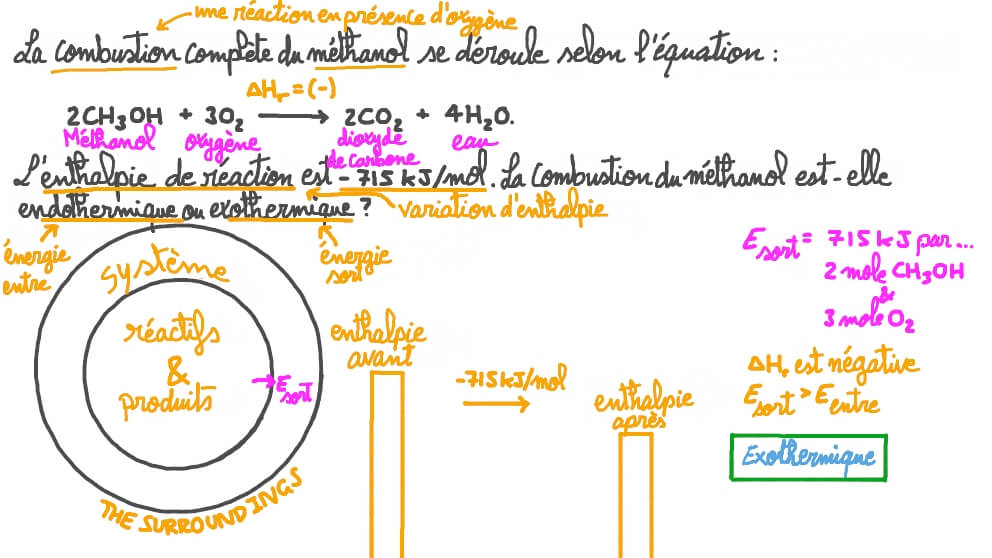 une réaction en présence d'oxygène
La combustion complète du méthanol se déroule selon l'équation :
ΔHr = (-)
2CH₃OH + 3O₂ → 2CO₂ + 4H₂O.
Méthanol oxygène dioxyde de carbone eau
L'enthalpie de réaction est -715 kJ/mol. La combustion du méthanol est-elle
endothermique ou exothermique ?
variation d'enthalpie
énergie entre
énergie sort
système
réactifs
&
produits
→ E sort
THE SURROUNDINGS
enthalpie
avant
-715 kJ/mol
enthalpie
après
E sort = 715 kJ par...
2 mole CH₃OH
&
3 mole O₂
ΔHr est négative
E sort > E entre
Exothermique